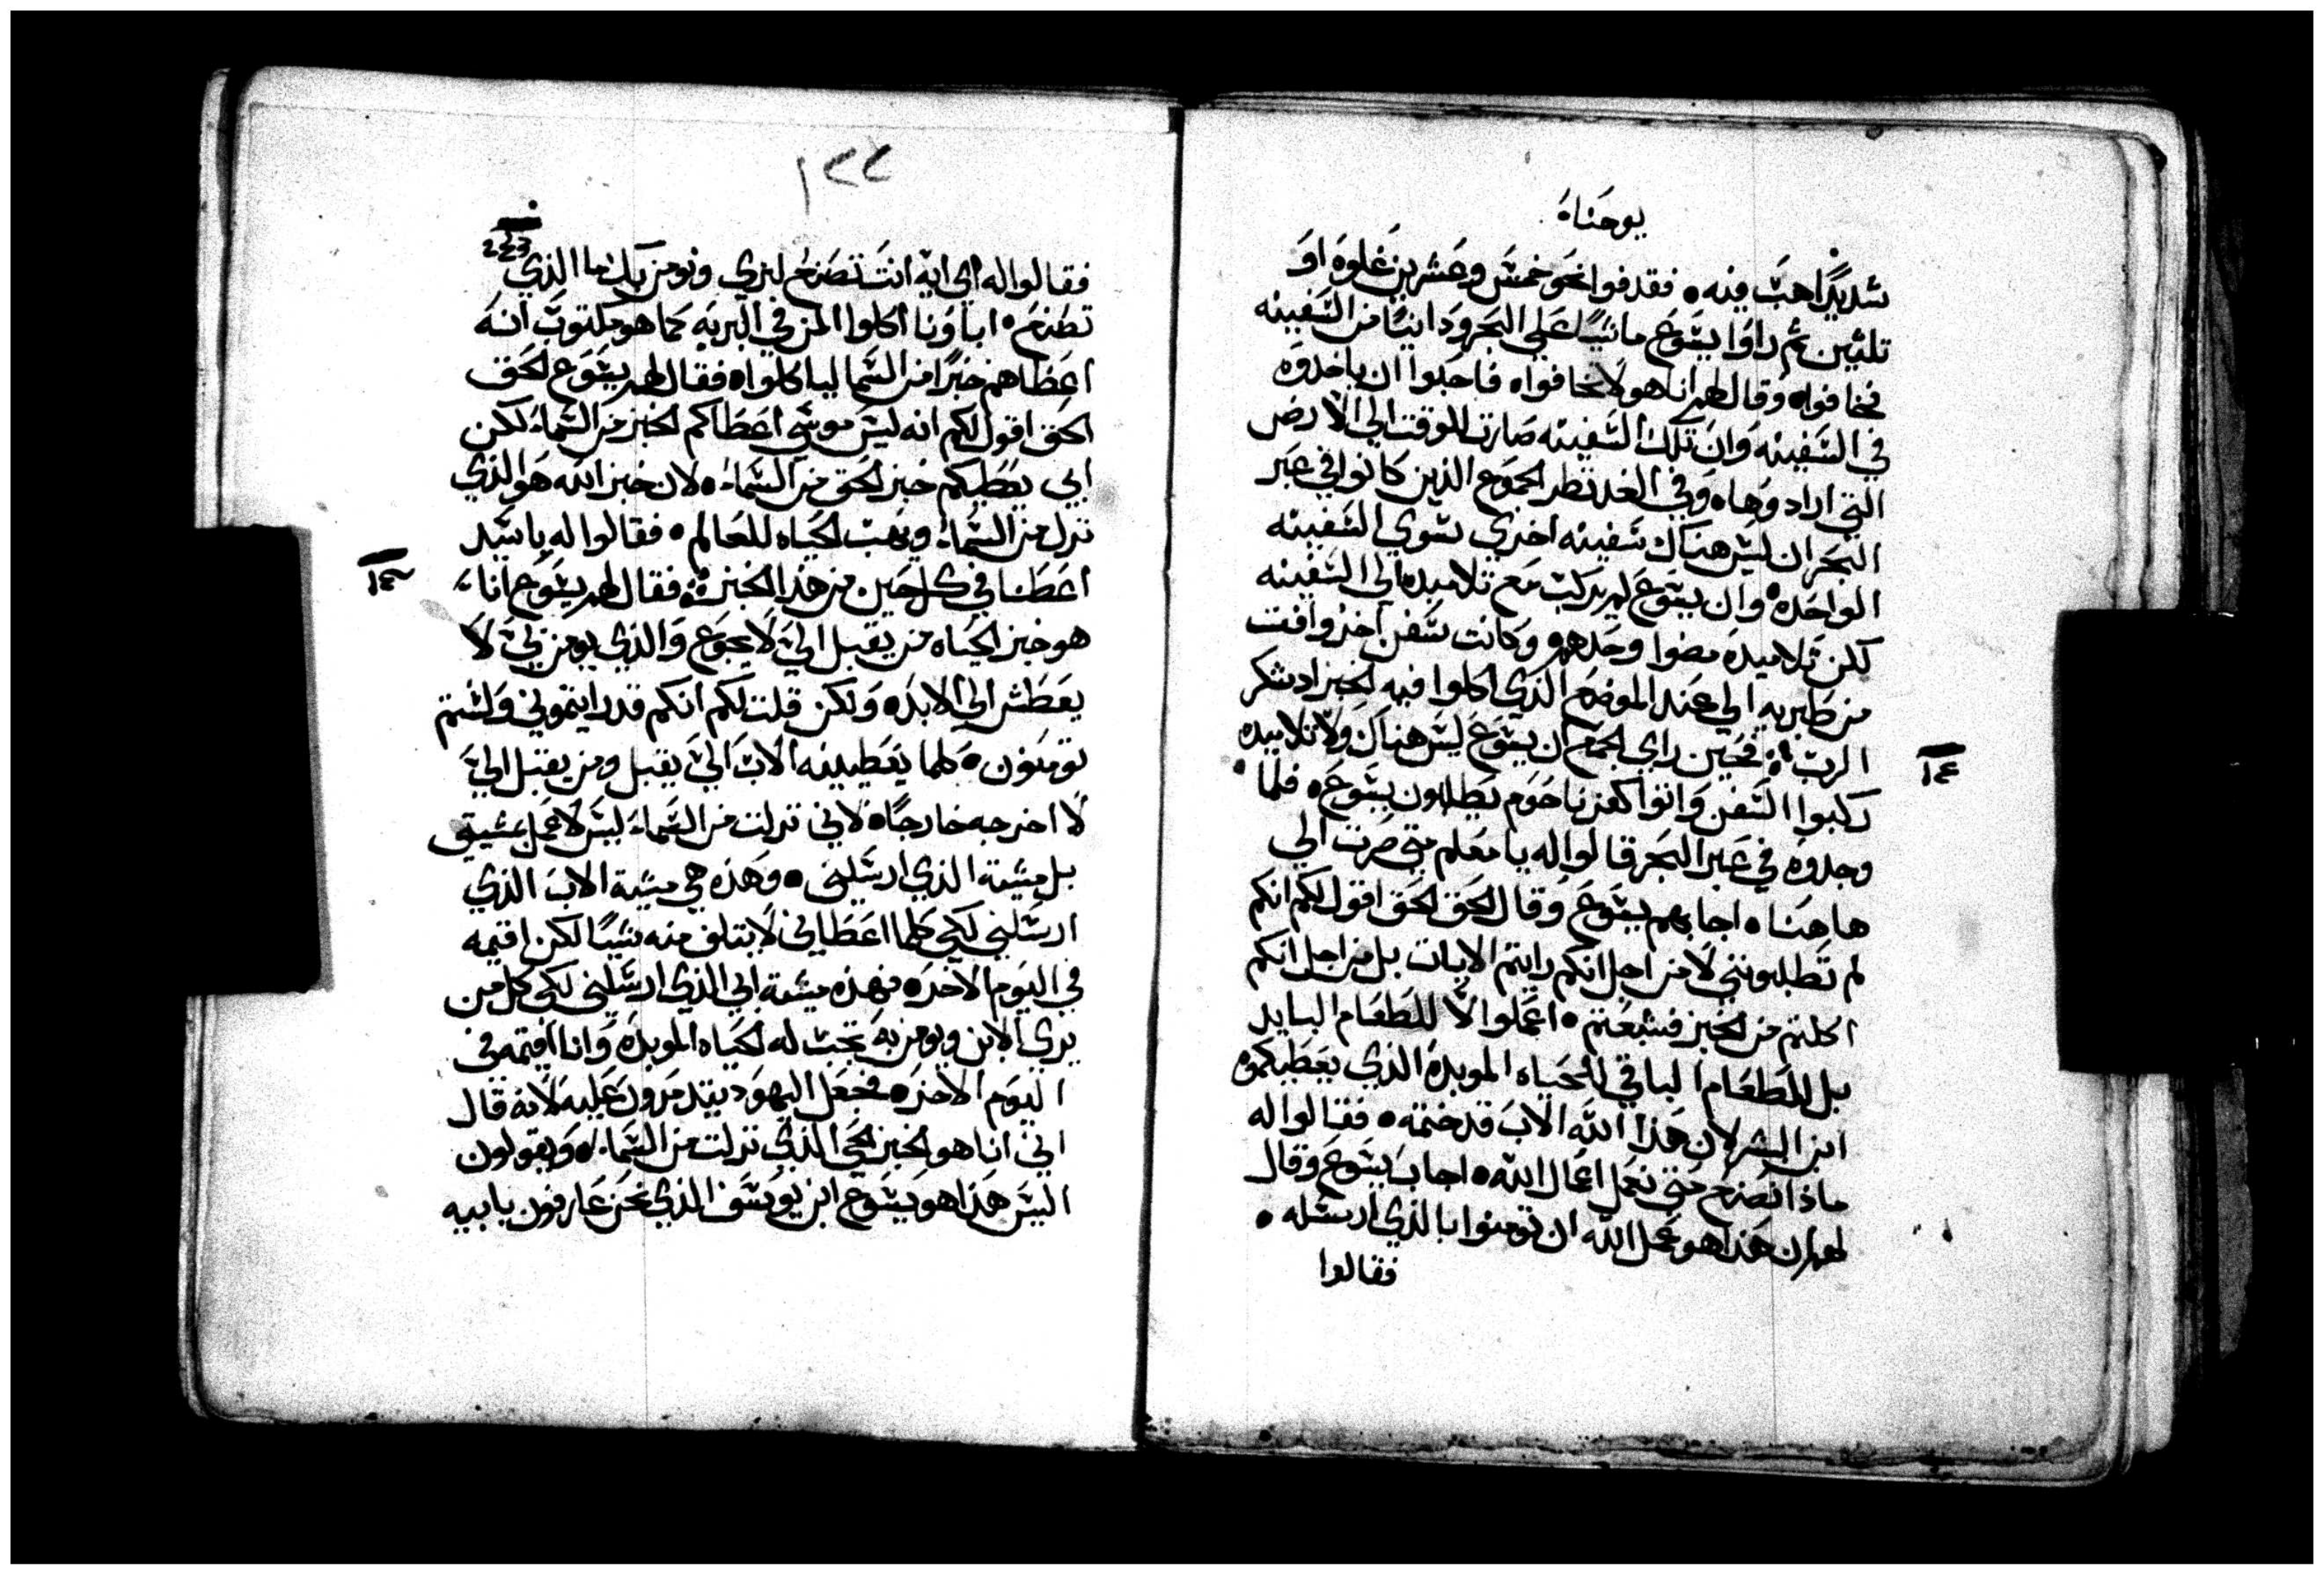 يوحناه
شديدًا هبت فيه ٥ فقدفوا نحو خمس وعشرين غلوه او
تلثين ثم راوا يسوع ماشيًا علي البحر ودانيًا من السفينه
فخافواه وقال لهم انا هو لا تخافواه فاحبوا ان ياخدوه
في السفينه وان تلك السفينه صارت للوقت الي الارض
التي ارادوهاه وفي الغد نظر الجموع الذين كانوا في عبر
البحر ان ليس هناك سفينه اخري سوي السفينه
الواحده وان يسوع لم يركب مع تلاميده الي السفينه
لكن تلاميده مضوا وحدهم وكانت سفن اخر وافت
من طبريه الي عند الموضع الذي اكلوا فيه الخبز اد شكر
الرب ٥ فحين راي الجمع ان يسوع ليس هناك ولا تلاميده
١٤
ركبوا السفن واتوا كفرناحوم يطلبون يسوع ٥ فلما
وجدوه في عبر البحر قالوا له يا معلم متي صرت الي
هاهناه اجابهم يسوع وقال الحق الحق اقول لكم انكم
لم تطلبونني لا من اجل انكم رايتم الايات بل من اجل انكم
اكلتم من الخبز فشبعتم ٥ اعملوا لا للطعام البايد
بل للطعام الباقي للحياه الموبده الذي يعطيكموه
ابن البشر لان هذا الله الاب قد ختمه ٥ فقالوا له
ماذا نصنع حتي نعمل اعمال الله ٥ اجاب يسوع وقال
لهم ان هذا هو عمل الله ان تومنوا بالذي ارسله ٥
فقالوا
١٢٢
243
فقالوا له اي ايه انت تصنع لنري ونومن بك ما الذي
تصنع ٥ اباونا اكلوا المن في البريه كما هو مكتوب انه
اعطاهم خبزًا من السما لياكلواه فقال لهم يسوع الحق
الحق اقول لكم انه ليس موسي اعطاكم الخبز من السماء لكن
ابي يعطيكم خبز الحق من السماء ٥ لان خبز الله هو الذي
نزل من السماء ويهب الحياه للعالم ٥ فقالوا له يا سيد
اعطنا في كل حين من هذا الخبز ٥ فقال لهم يسوع انا
هو خبز الحياه من يقبل الي لا يجوع والذي يومن بي لا
يعطش الي الابده ولكن قلت لكم انكم قد رايتموني ولستم
تومنون ٥ كلما يعطينيه الاب الي يقبل ومن يقبل الي
لا اخرجه خارجًاه لاني نزلت من السماء ليس لاعمل بمشيتي
بل مشية الذي ارسلني ٥ وهذه هي مشية الاب الذي
ارسلني لكي كلما اعطاني لا يتلف منه شيًا لكن اقيمه
في اليوم الاخره فهذه مشية ابي الذي ارسلني لكي كل من
يري الابن ويومن به تجب له الحياه الموبده وانا اقيمه في
اليوم الاخره فجعل اليهود يتدمرون عليه لانه قال
اني انا هو الخبز الحي الذي نزلت من السماء ٥ ويقولون
اليس هذا هو يسوع ابن يوسف الذي نحن عارفون بابيه